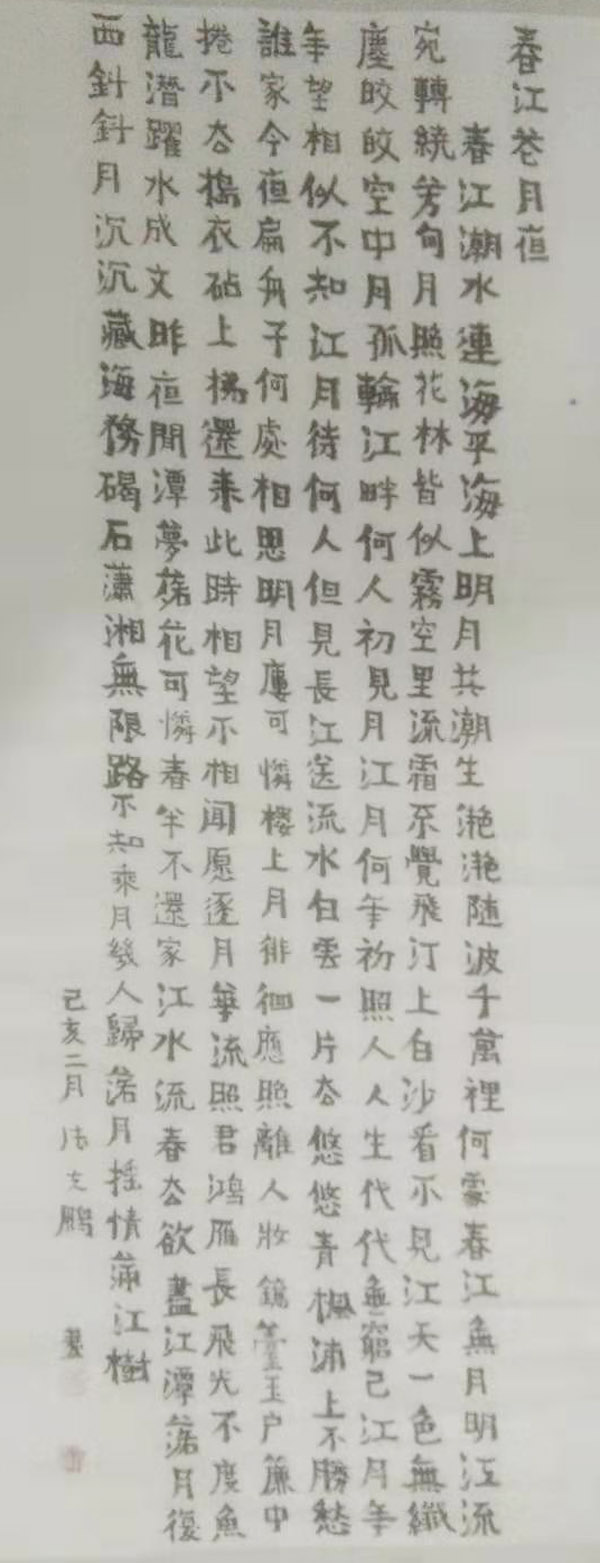 春江花月夜
春江潮水連海平海上明月共潮生滟滟随波千萬裡何處春江無月明江流
宛轉繞芳甸月照花林皆似霧空里流霜不覺飛汀上白沙看不見江天一色無纖
塵皎皎空中月孤輪江畔何人初見月江月何年初照人人生代代無窮已江月年
年望相似不知江月待何人但見長江送流水白雲一片去悠悠青楓浦上不勝愁
誰家今夜扁舟子何處相思明月樓可憐樓上月徘徊應照離人妝鏡臺玉户簾中
捲不去搗衣砧上拂還来此時相望不相闻愿逐月華流照君鴻雁長飛光不度魚
龍潛躍水成文昨夜閒潭夢落花可憐春半不還家江水流春去欲盡江潭落月復
西斜斜月沉沉藏海霧碣石瀟湘無限路不知乘月幾人歸落月摇情滿江樹
己亥二月 鹏